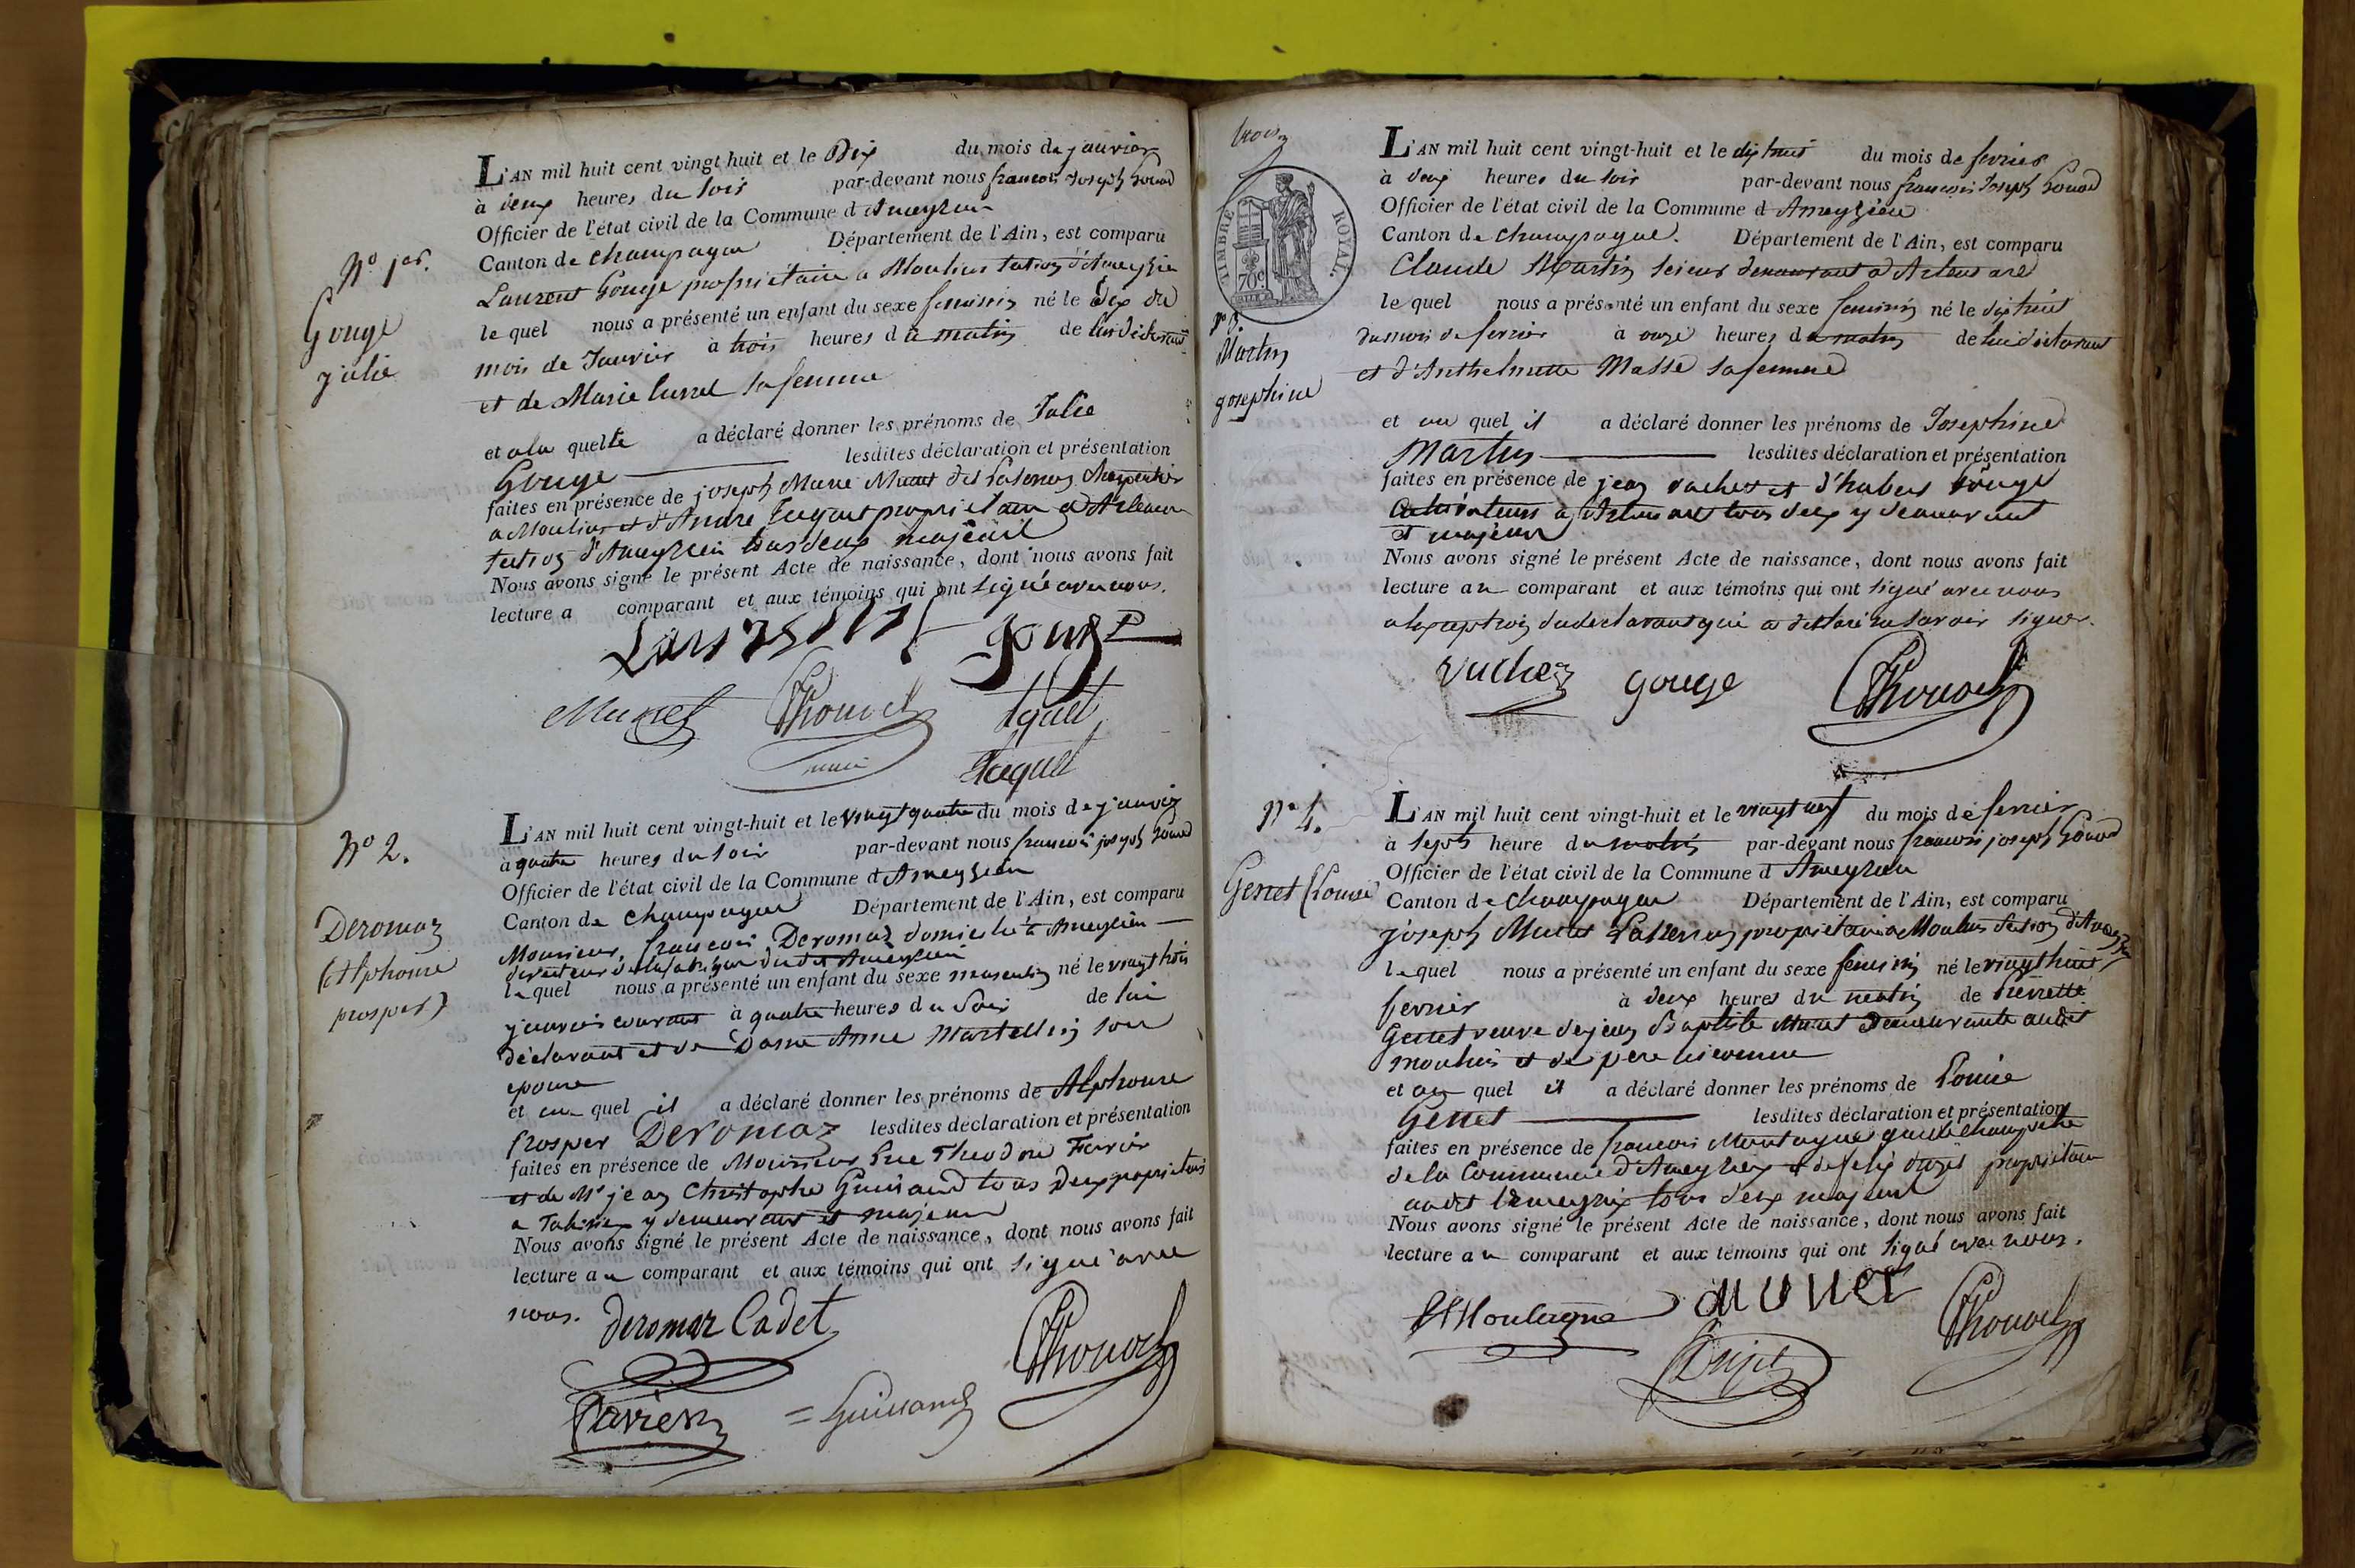 N° 1er.
Gouge
julie
L'AN mil huit cent vingt huit et le Dix du mois de janvier
à deux heures du soir par-devant nous francois Joseph
Officier de l'état civil de la Commune d'Ameyzieu
Canton de champagne Département de l'Ain, est comparu
Laurent Gouge propriétaire a Moulins section d'Ameyzieu
le quel nous a présenté un enfant du sexe feminin né le Dix du
mois de Janvier à trois heures du matin de lui déclarant
et de Marie sa femme
et a la quelle a déclaré donner les prénoms de Julie
Gouge lesdites déclaration et présentation
faites en présence de joseph Marie Munet dit charpentier
a Moulins et d'André proprietaire a
section d'Ameyzieu tous deux majeurs
Nous avons signé le présent Acte de naissance, dont nous avons fait
lecture a comparant et aux témoins qui ont signé avec nous.
Laurent gouge
Munet
maire
N° 2.
Deromaz
(Alphonse
prosper)
L'AN mil huit cent vingt-huit et le vingt quatre du mois de janvier
à quatre heures du soir par-devant nous francois joseph
Officier de l'état civil de la Commune d'Ameyzieu
Canton de champagne Département de l'Ain, est comparu
Monsieur, francois Deromaz domicilié à Ameyzieu
directeur de la fabrique dudit Ameyzieu
le quel nous a présenté un enfant du sexe masculin né le vingt trois
janvier courant à quatre heures du soir de lui
déclarant et de Dame Anne Martellin son
epouse
et au quel il a déclaré donner les prénoms de Alphonse
Prosper Deromaz lesdites déclaration et présentation
faites en présence de Monsieur Theodore
et de Mr jean Christophe tous deux proprietaires
a y demeurant et majeurs
Nous avons signé le présent Acte de naissance, dont nous avons fait
lecture au comparant et aux témoins qui ont signé avec
nous.
deromaz Cadet
trois
TIMBRE ROYAL.
70c.
n° 3.
Martin
josephine
L'AN mil huit cent vingt-huit et le dix huit du mois de fevrier
à deux heures du soir par-devant nous francois Joseph
Officier de l'état civil de la Commune d'Ameyzieu
Canton de champagne. Département de l'Ain, est comparu
Claude Martin scieur demeurant a
le quel nous a présenté un enfant du sexe feminin né le dix huit
du mois de fevrier à onze heures du matin de lui déclarant
et d'Anthelmette Masse sa femme
et au quel il a déclaré donner les prénoms de Josephine
Martin lesdites déclaration et présentation
faites en présence de jean vuchez et d'hubert Gouge
cultivateurs a tous deux y demeurant
et majeurs
Nous avons signé le présent Acte de naissance, dont nous avons fait
lecture au comparant et aux témoins qui ont signé avec nous
a l'exception du déclarant qui a déclaré ne savoir signer.
vuchez gouge
N° 4.
Genet (Louise
L'AN mil huit cent vingt-huit et le vingt neuf du mois de fevrier
à sept heure du matin par-devant nous francois joseph
Officier de l'état civil de la Commune d'Ameyzieu
Canton de champagne Département de l'Ain, est comparu
joseph Munet propriétaire a Moulins section d'Ameyzieu
le quel nous a présenté un enfant du sexe feminin né le vingt huit
fevrier à deux heures du matin de pierrette
Genet veuve de jean Baptiste Munet demeurante audit
moulins et de père inconnu
et au quel il a déclaré donner les prénoms de Louise
Genet lesdites déclaration et présentation
faites en présence de francois Montagne garde champetre
de la Commune d'Ameyzieu et de felix proprietaire
audit Ameyzieu tous deux majeurs
Nous avons signé le présent Acte de naissance, dont nous avons fait
lecture au comparant et aux témoins qui ont signé avec nous.
Montagne Munet